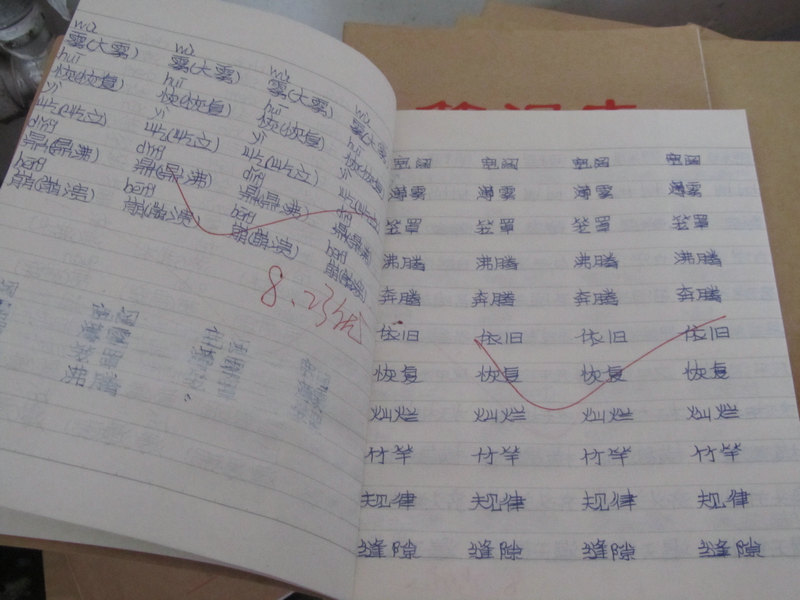 wù wù wù wù
雾(大雾) 雾(大雾) 雾(大雾) 雾(大雾)
huī huī huī huī
恢(恢复) 恢(恢复) 恢(恢复) 恢(恢复)
yì yì yì yì
屹(屹立) 屹(屹立) 屹(屹立) 屹(屹立)
dǐng dǐng dǐng
鼎(鼎沸) 鼎(鼎沸) 鼎(鼎沸) 鼎(鼎沸)
bēng bēng bēng
崩(崩溃) 崩(崩溃) 崩(崩溃) 崩(崩溃)
8.23
宽阔 宽阔 宽阔 宽阔
薄雾 薄雾 薄雾 薄雾
笼罩 笼罩 笼罩 笼罩
沸腾 沸腾 沸腾 沸腾
奔腾 奔腾 奔腾 奔腾
依旧 依旧 依旧 依旧
恢复 恢复 恢复 恢复
灿烂 灿烂 灿烂 灿烂
竹竿 竹竿 竹竿 竹竿
规律 规律 规律 规律
缝隙 缝隙 缝隙 缝隙